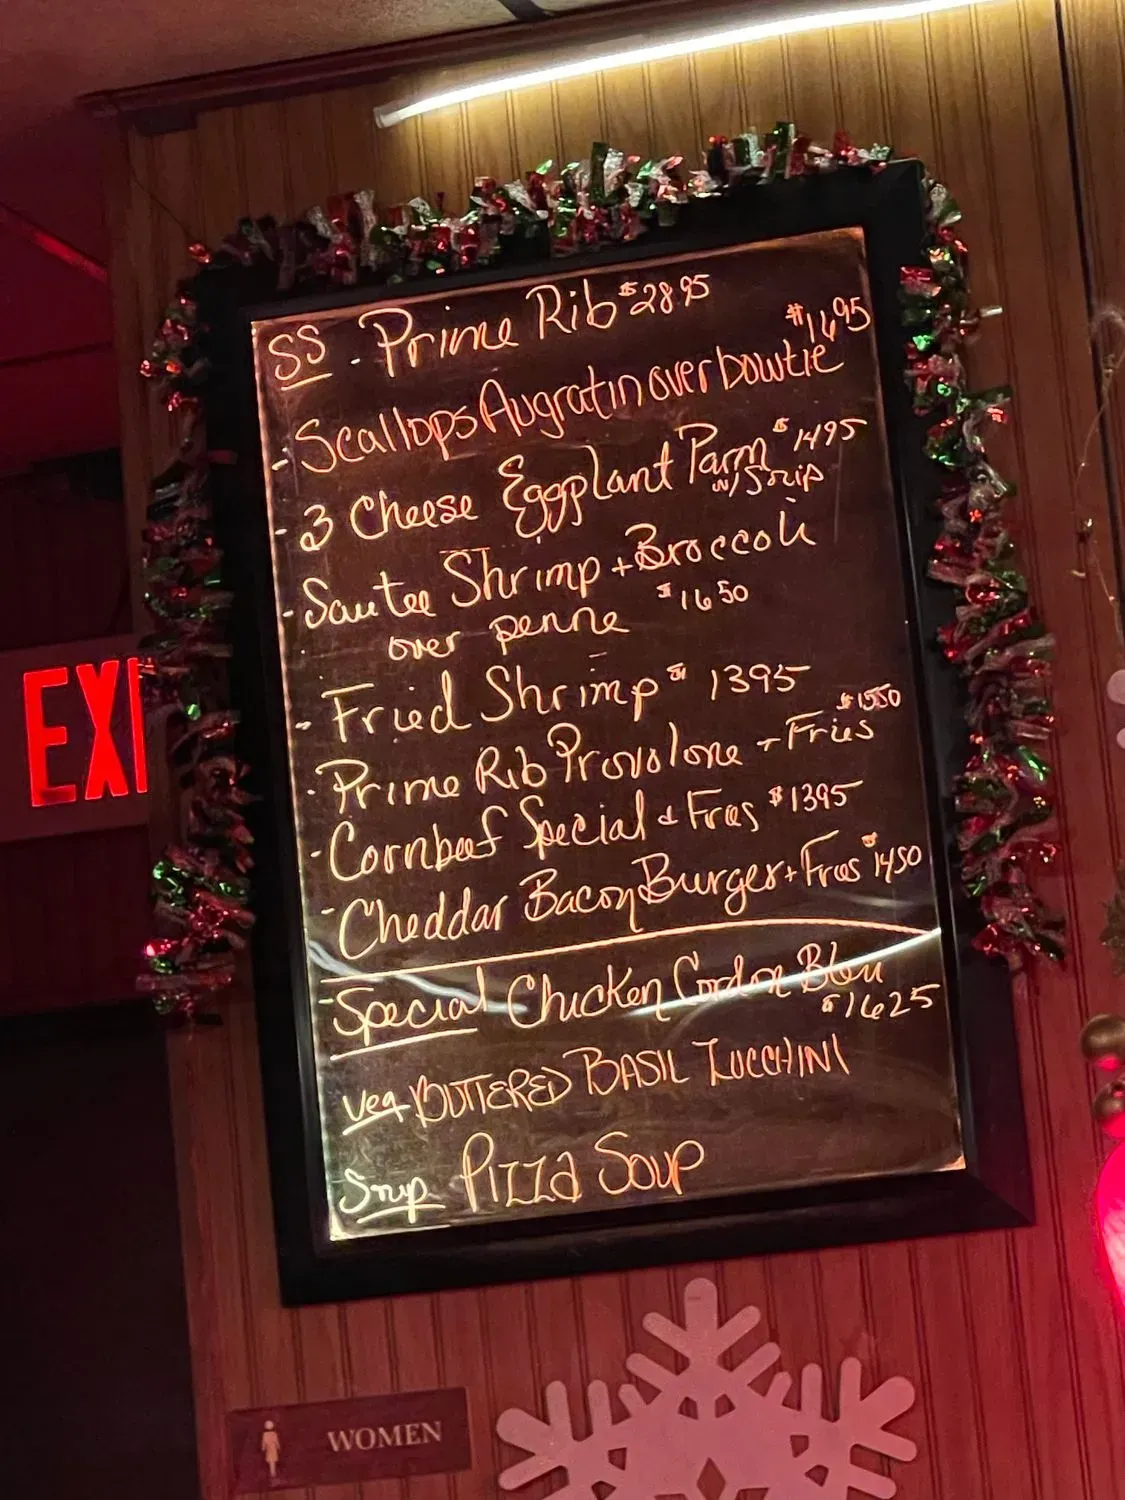 SS - Prime Rib $28 95
$16 95
- Scallops Augratin over bowtie
- 3 Cheese Eggplant Parm $14 95
w/
- Sautee Shrimp + Broccoli
over penne $16 50
- Fried Shrimp $13 95
- Prime Rib Provolone + Fries $15 50
- Cornbeef Special + Fries $13 95
- Cheddar Bacon Burger + Fries $14 50
- Special Chicken Cordon Bleu
$16 25
Veg BUTTERED BASIL ZUCCHINI
Soup PIZZA SOUP
EXI
WOMEN